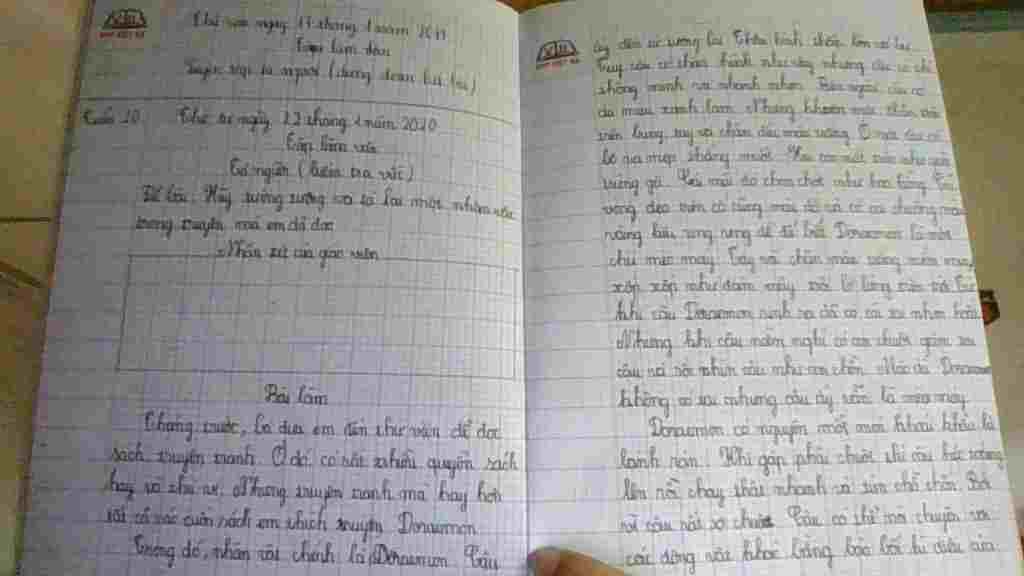 Thứ sáu ngày 17 tháng 1 năm 2019
Tập làm văn
Luyện tập tả người (dựng đoạn kết bài)
Tuần 20 Thứ tư ngày 22 tháng 1 năm 2020
Tập làm văn
Tả người (kiểm tra viết)
Đề bài: Hãy tưởng tượng và tả lại một nhân vật
trong truyện mà em đã đọc
Nhận xét của giáo viên
Bài làm
Tháng trước, ba đưa em đến thư viện để đọc
sách truyện tranh. Ở đó, có rất nhiều quyển sách
hay và thú vị. Nhưng truyện tranh mà hay hơn
tất cả các cuốn sách em thích truyện Doraemon.
Trong đó, nhân vật chính là Doraemon. Cậu
ấy đến từ tương lai. Thân hình tròn
Tuy vẫn có thân hình như vậy nhưng cậu có
thông minh và nhanh nhẹn. Bên ngoài cậu có
da màu xanh lam. Nhưng khuôn mặt
trên bụng, tay và chân đều màu trắng. Ở mặt cậu có
bộ ria mép thẳng mượt. Hai con mắt tròn như quả
trứng gà. Cái mũi đỏ chon chót như hoa hồng. Cái
vòng đeo trên cổ cũng màu đỏ và có cái chuông màu
vàng kêu rung rung dễ Doraemon là một
chú mèo máy. Tay và chân màu trắng mềm mại
xốp xốp như đám mây trôi lơ lửng trên trời. Lúc
khi cậu Doraemon sinh ra đã có cái tai
Nhưng khi cậu nằm nghỉ có con chuột gặm tai
cậu và Mặc dù Doraemon
không có tai nhưng cậu ấy vẫn là mèo máy.
Doraemon có nguyên một món khoái khẩu là
bánh rán. Khi gặp phải chuột thì cậu
lên rồi chạy thật nhanh và tìm chỗ trốn. Bởi
vì cậu rất sợ chuột. Cậu có thể nói chuyện với
các động vật khác bằng bảo bối kì diệu của